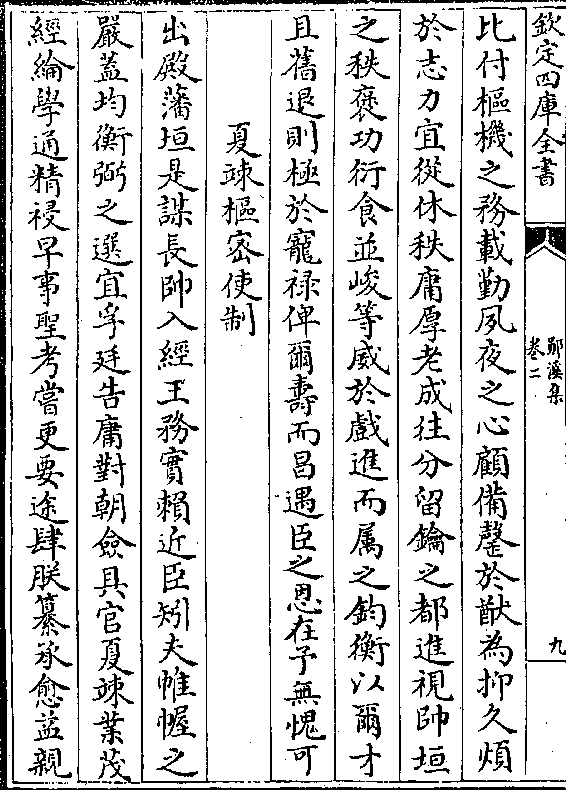 欽定四庫全書
鄖溪集
卷二
九
比付樞機之務載勤夙夜之心顧備罄於猷為抑久煩
於志力宜從休秩庸厚老成往分留鑰之都進視帥垣
之秩褒功衍食並峻等威於戲進而属之鈞衡以爾才
且舊退則極於寵祿俾爾壽而昌遇臣之恩在予無愧可
夏竦樞密使制
出殿藩垣是謀長帥入經王務實賴近臣矧夫帷幄之
嚴蓋均衡弼之選宜孚廷告庸對朝僉具官夏竦業茂
經綸學通精祲早事聖考嘗更要途肆朕纂承愈益親